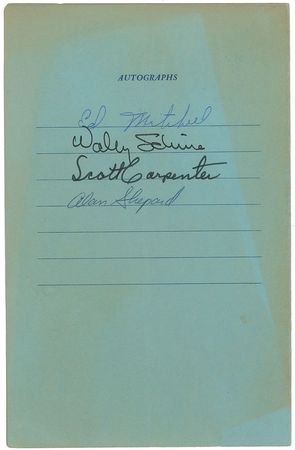 AUTOGRAPHS
Ed Mitchell
Wally Schirra
Scott Carpenter
Alan Shepard